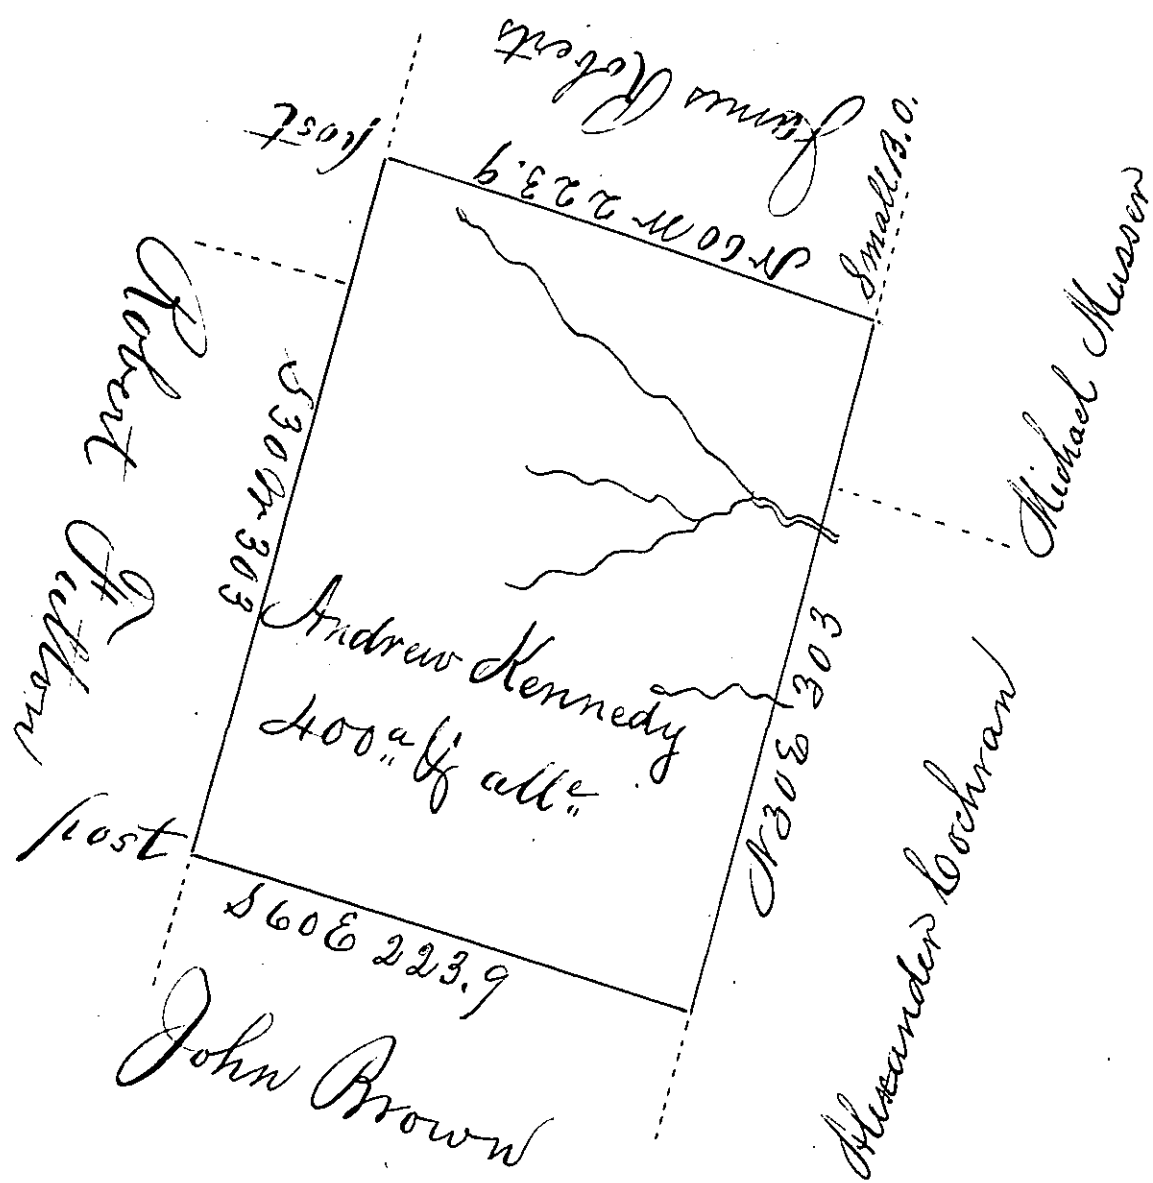 James Roberts
post
N 60 W 223.9
Small B.O.
Michael Musser
Robert Fulton
S 30 W 303
Andrew Kennedy
400 a &c alle
N 30 E 303
Alexander Cochran
post
S 60 E 223.9
John Brown